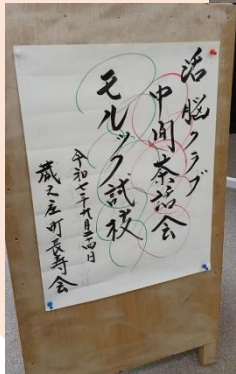 活脳クラブ
中間茶話会
モルック試技
令和七年九月二四日
蔵之庄町長寿会